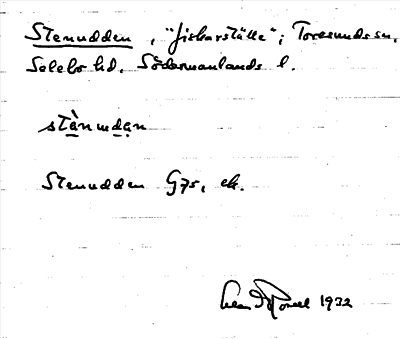 Stenudden, "fiskarställe"; Toresunds sn,
Selebo hd, Södermanlands l.
stä̀nᵤdan
Stenudden G75, ek.
1932